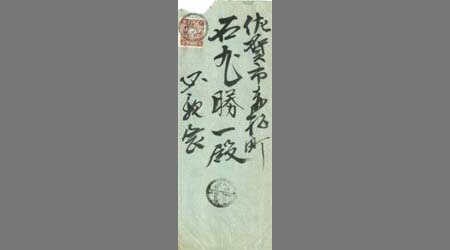 佐賀市赤松町
石丸勝一殿
必親展